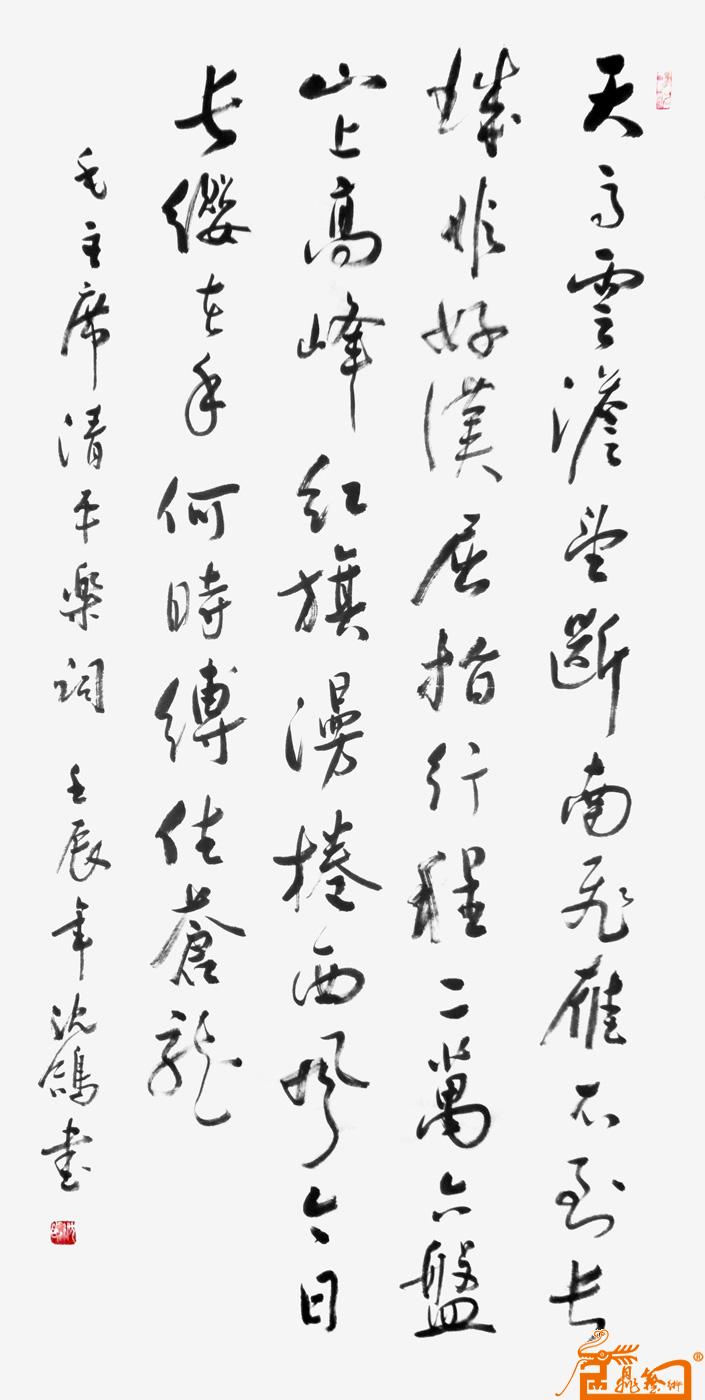 天高雲澹望斷南飛雁不到长
城非好漢屈指行程二萬六盤
山上高峰紅旗漫捲西風今日
长纓在手何時縛住蒼龍
毛主席清平樂詞 壬辰年沈鴿書